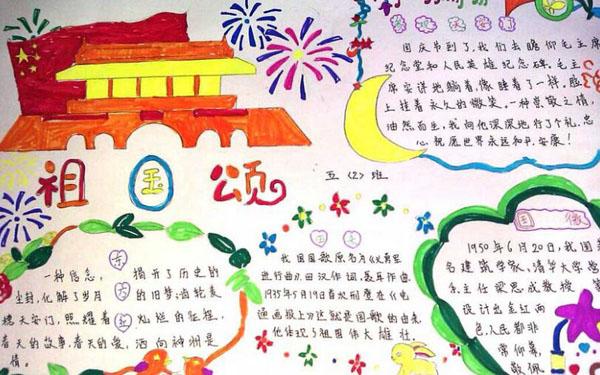 国庆节到了,我们去瞻仰毛主席
纪念堂和人民英雄纪念碑,毛主
席安详地躺着,像睡着了一样,脸
上挂着永久的微笑,一种崇敬之情,
油然而生,我向他深深地行了个礼,忠
心祝愿世界永远和平、安康!
五〈2〉班
祖国颂
一种信念,
揭开了历史的
尘封,化解了岁月
的旧梦;齿轮麦
穗天安门,照耀着
灿烂的征程.
春天的故事,春天的爱,洒向神州是
情。
国歌
我国国歌原名为《义勇军
进行曲》,田汉作词,聂耳作曲
1935年5月19日首次刊登在《电
通画报上》这就是国歌的由来
他体现了祖国伟大雄壮.
国徽
1950年6月20日,我国
名建筑学家、清华大学
系主任梁思成教授
设计出金红
色,人民都非
常仰慕,
敬佩